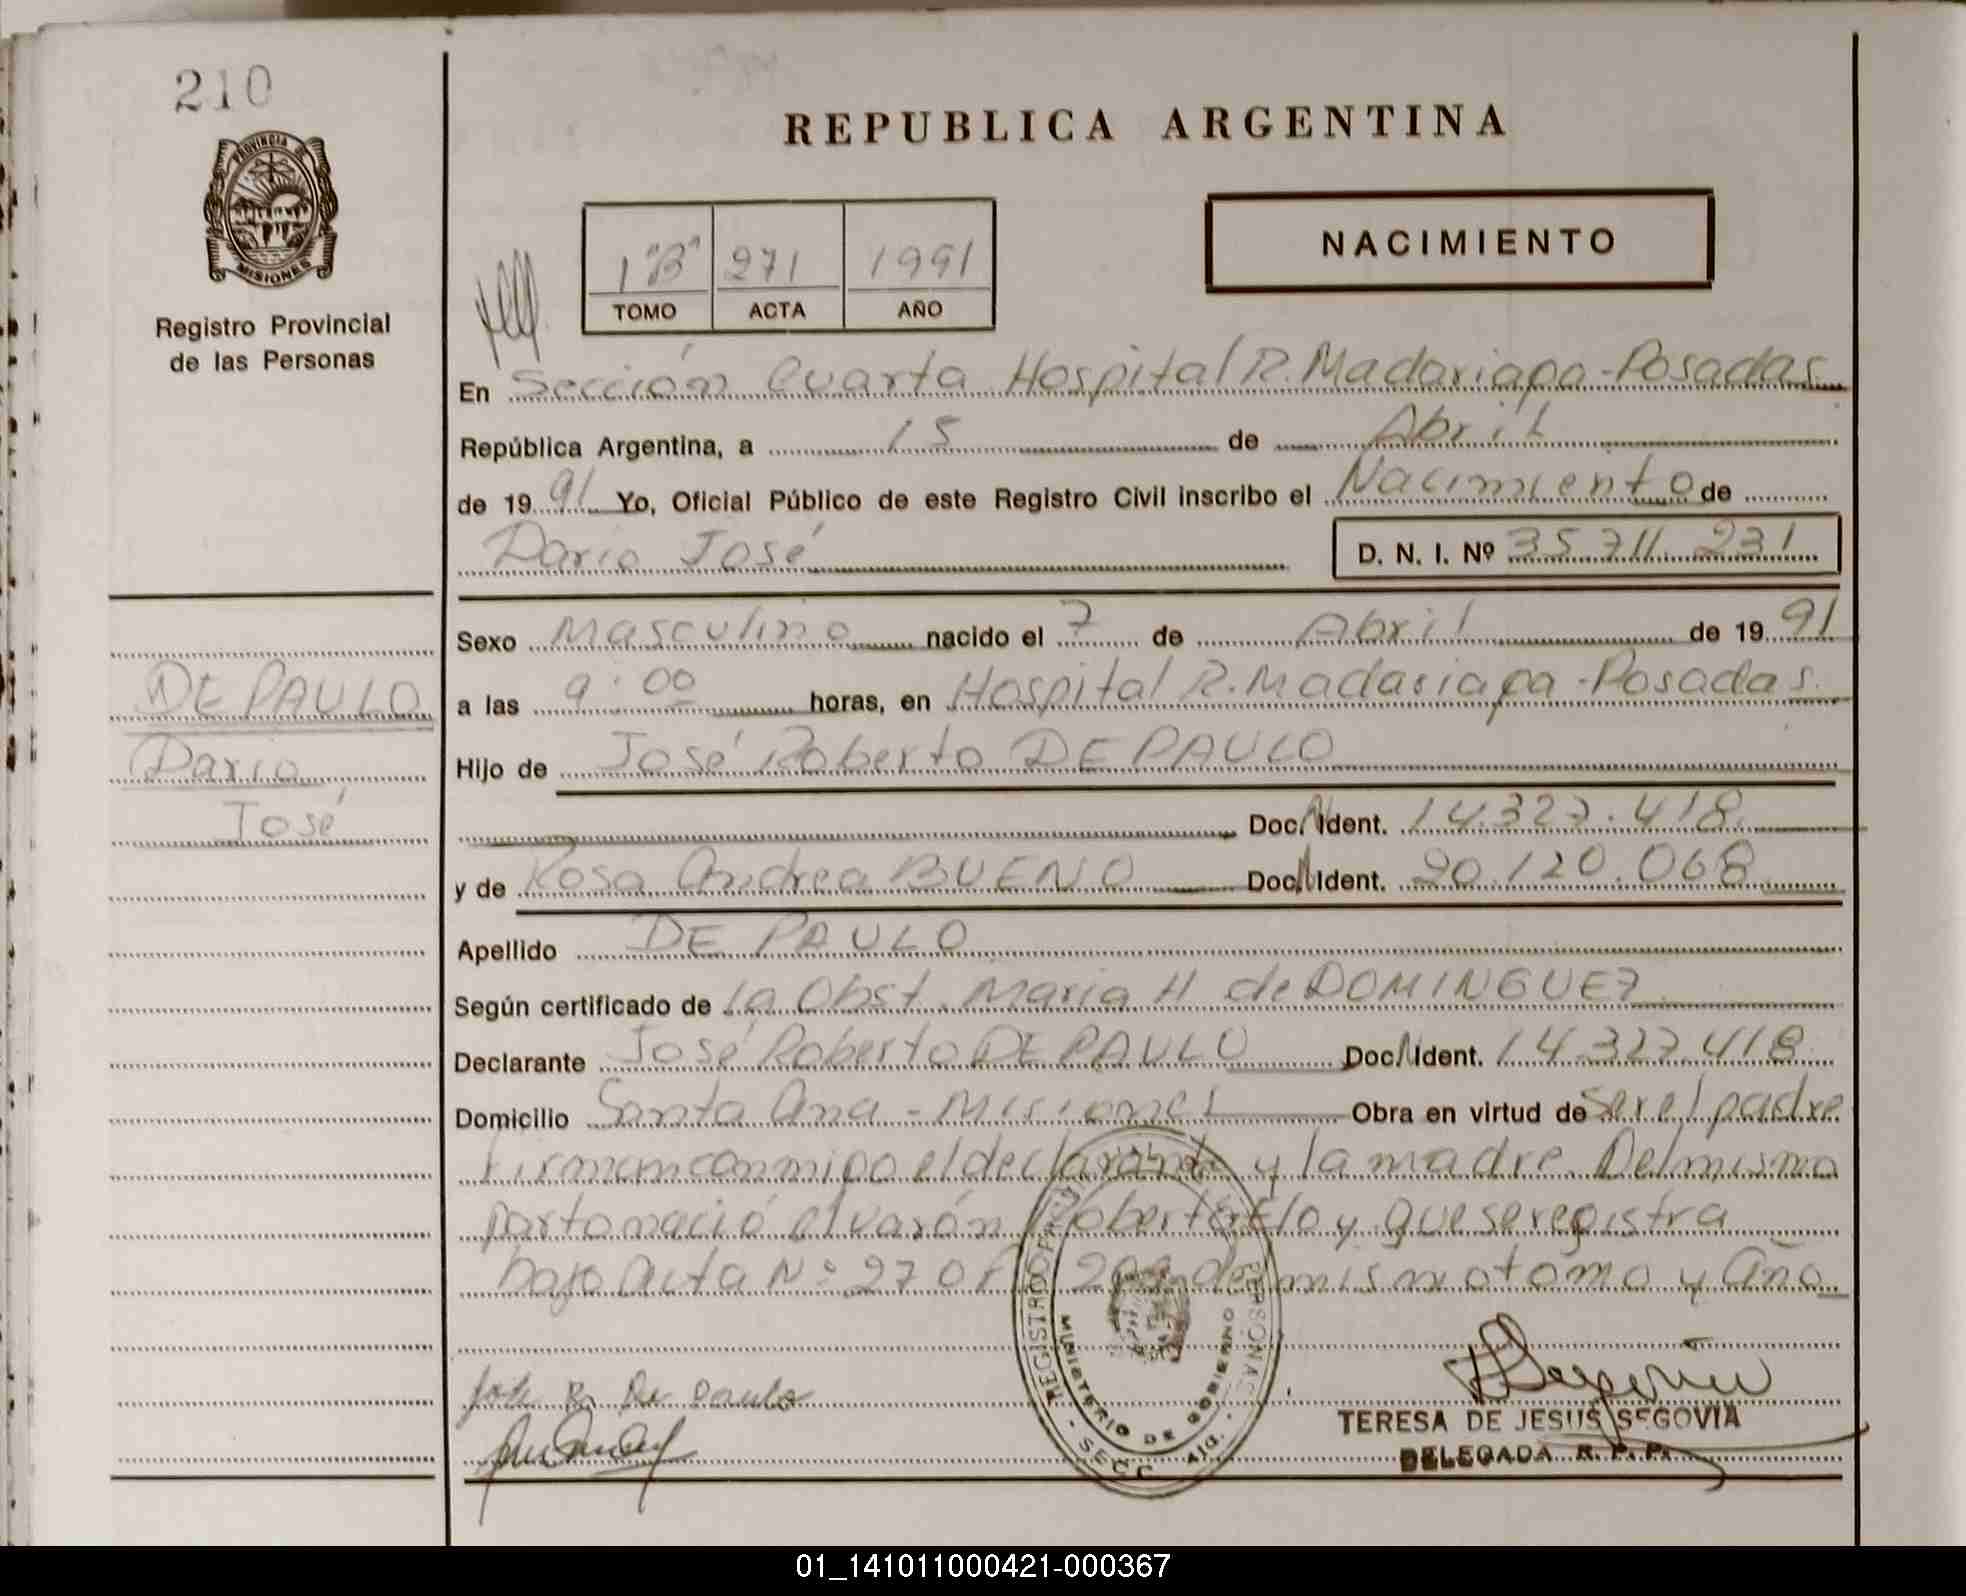 210
PROVINCIA DE
MISIONES
Registro Provincial
de las Personas
DE PAULO
Dario
José
REPUBLICA ARGENTINA
1"B" 271 1991
TOMO ACTA AÑO
NACIMIENTO
En Sección Cuarta Hospital R. Madariaga - Posadas
República Argentina, a 15 de Abril
de 1991 Yo, Oficial Público de este Registro Civil inscribo el Nacimiento de
Dario José D. N. I. Nº 35.711.231
Sexo Masculino nacido el 7 de Abril de 1991
a las 9:00 horas, en Hospital R. Madariaga - Posadas.
Hijo de José Roberto DE PAULO
Doc. N Ident. 14.327.418
y de Rosa Andrea BUENO Doc. N Ident. 20.120.068
Apellido DE PAULO
Según certificado de la Obst. Maria H de DOMINGUEZ
Declarante José Roberto DE PAULO Doc. N Ident. 14.327.418
Domicilio Santa Ana - Misiones Obra en virtud de ser el padre
Firman conmigo el declarante y la madre. Del mismo
parto nació el varón Roberto Eloy que se registra
bajo Acta Nº 270 F del mismo tomo y Año
REGISTRO PERSONAS
MINISTERIO DE GOBIERNO
SECC.
José R. De Paulo
TERESA DE JESUS SEGOVIA
DELEGADA R. P. P.
01_141011000421-000367